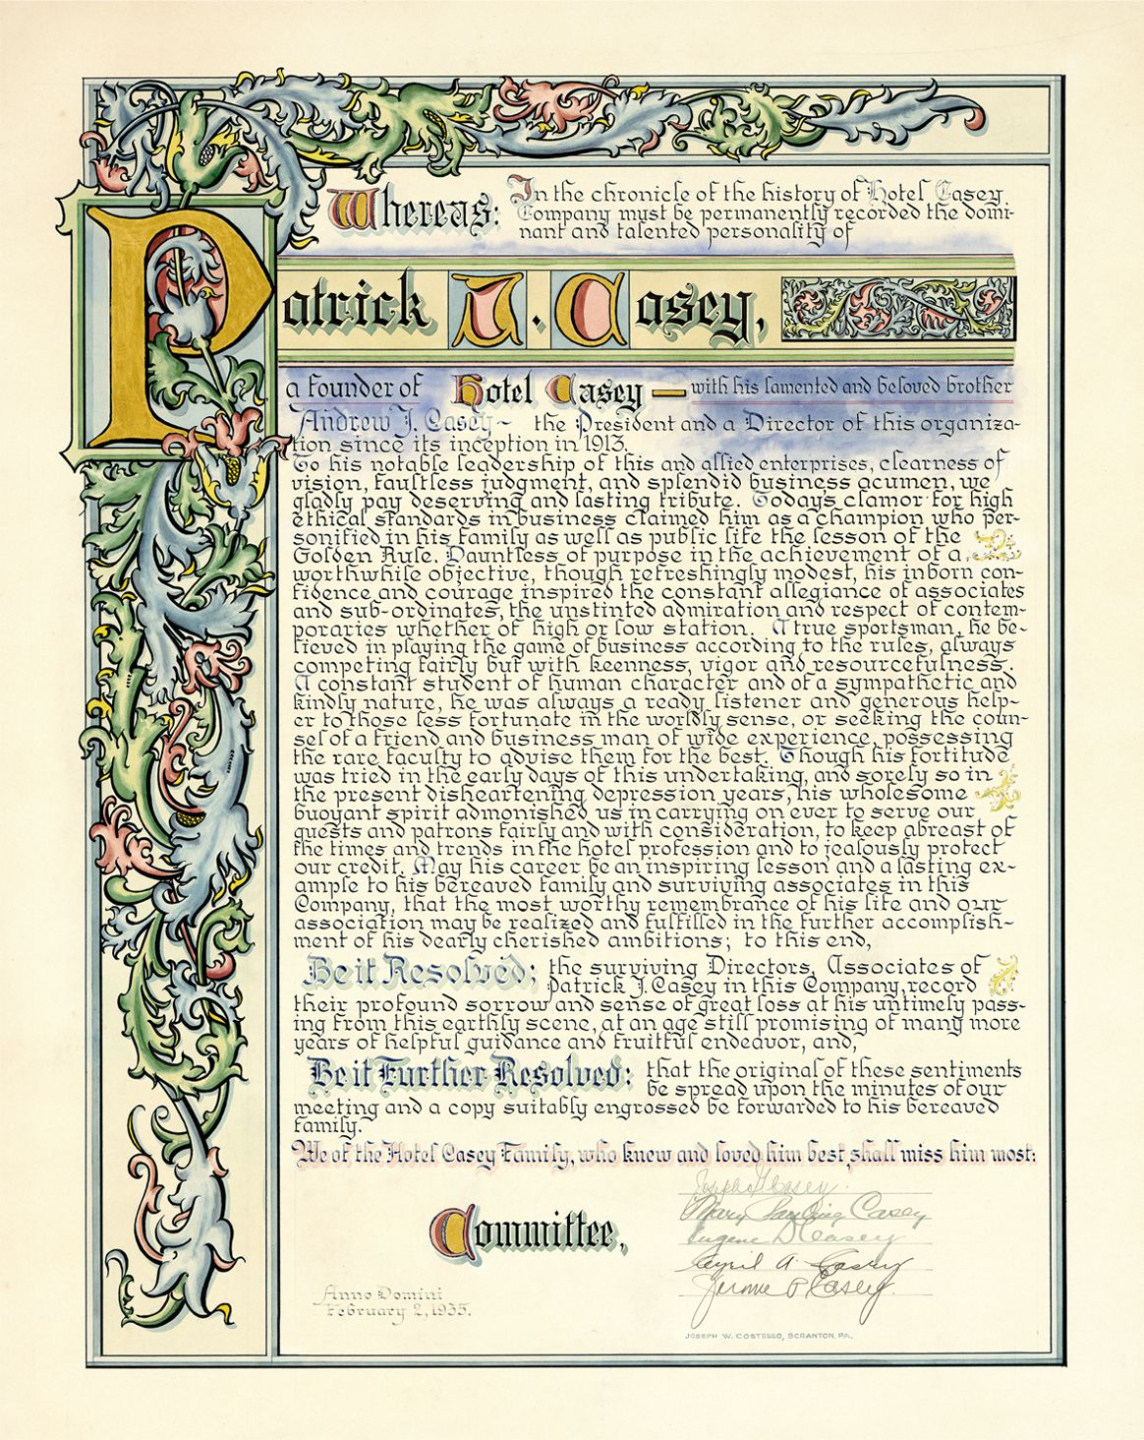 Whereas: In the chronicle of the history of Hotel Casey
Company must be permanently recorded the domi-
nant and talented personality of
Patrick J. Casey,
a founder of Hotel Casey — with his lamented and beloved brother
Andrew J. Casey ~ the President and a Director of this organiza-
tion since its inception in 1913.
To his notable leadership of this and allied enterprises, clearness of
vision, faultless judgment, and splendid business acumen, we
gladly pay deserving and lasting tribute. Today's clamor for high
ethical standards in business claimed him as a champion who per-
sonified in his family as well as public life the lesson of the
Golden Rule. Dauntless of purpose in the achievement of a
worthwhile objective, though refreshingly modest, his inborn con-
fidence and courage inspired the constant allegiance of associates
and sub-ordinates, the unstinted admiration and respect of contem-
poraries whether of high or low station. A true sportsman, he be-
lieved in playing the game of business according to the rules, always
competing fairly but with keenness, vigor and resourcefulness.
A constant student of human character and of a sympathetic and
kindly nature, he was always a ready listener and generous help-
er to those less fortunate in the worldly sense, or seeking the coun-
sel of a friend and business man of wide experience, possessing
the rare faculty to advise them for the best. Though his fortitude
was tried in the early days of this undertaking, and sorely so in
the present disheartening depression years, his wholesome
buoyant spirit admonished us in carrying on ever to serve our
guests and patrons fairly and with consideration, to keep abreast of
the times and trends in the hotel profession and to jealously protect
our credit. May his career be an inspiring lesson and a lasting ex-
ample to his bereaved family and surviving associates in this
Company, that the most worthy remembrance of his life and our
association may be realized and fulfilled in the further accomplish-
ment of his dearly cherished ambitions; to this end,
Be it Resolved: the surviving Directors, Associates of
Patrick J. Casey in this Company, record
their profound sorrow and sense of great loss at his untimely pass-
ing from this earthly scene, at an age still promising of many more
years of helpful guidance and fruitful endeavor, and,
Be it Further Resolved: that the original of these sentiments
be spread upon the minutes of our
meeting and a copy suitably engrossed be forwarded to his bereaved
family.
We of the Hotel Casey Family, who knew and loved him best, shall miss him most:
Joseph G Casey.
Mary Casey
Committee,
Eugene D Casey
Cyril A. Casey
Jerome P. Casey.
Anno Domini
February 2, 1935.
JOSEPH W. COSTELLO, SCRANTON, PA.